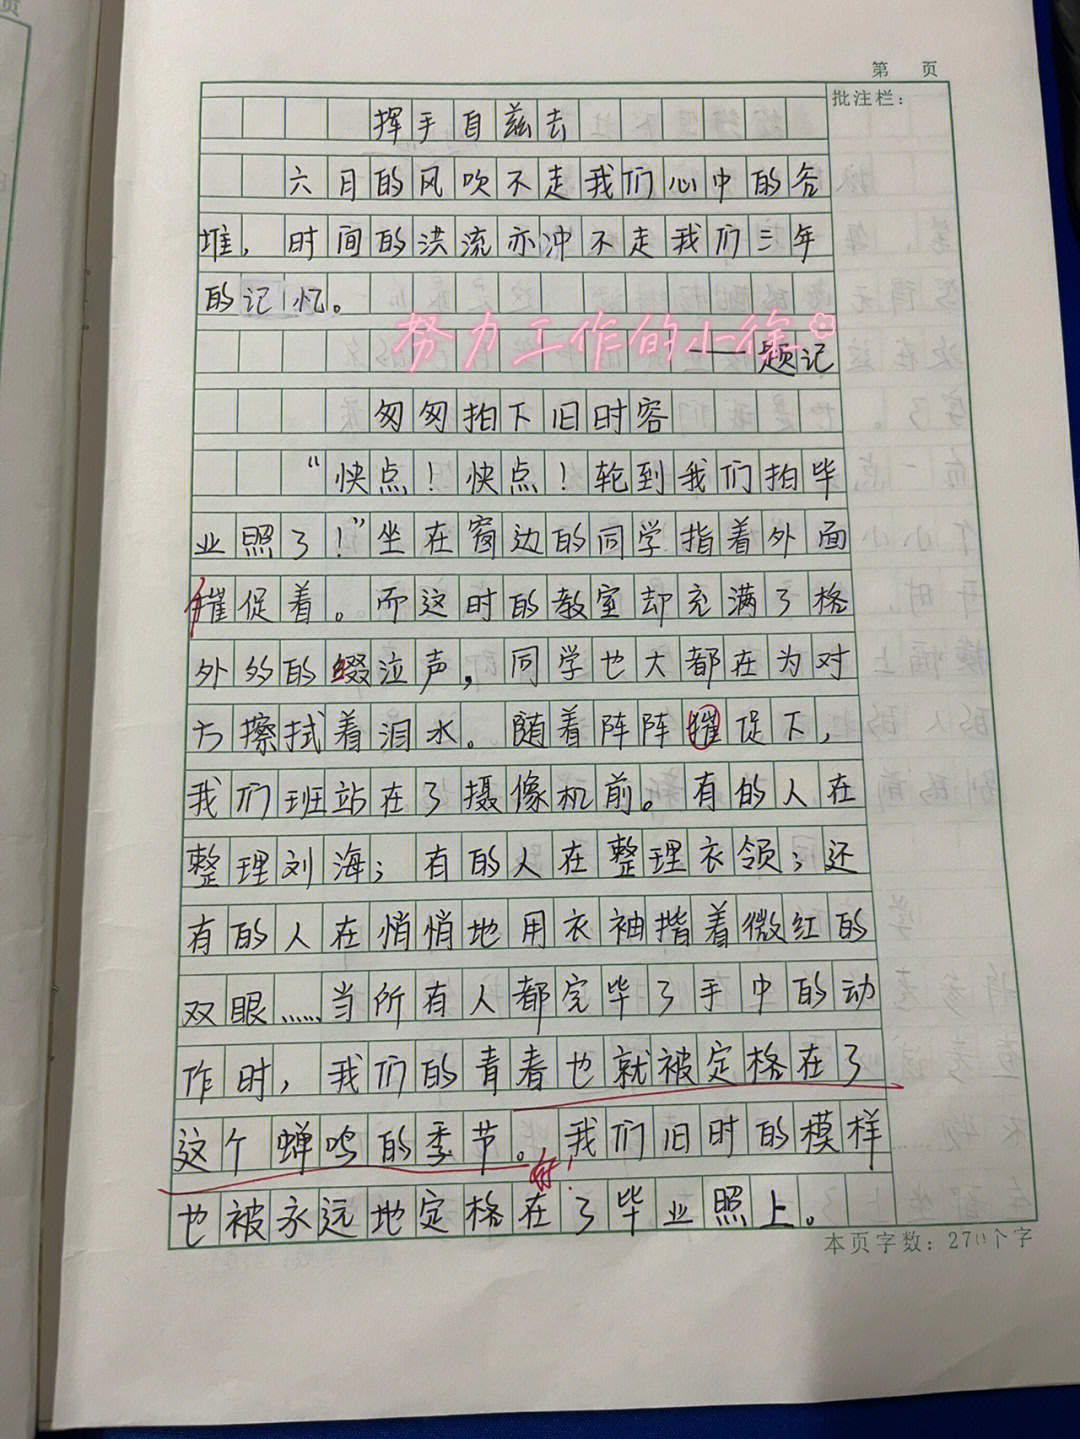 第 页
批注栏：
挥手自兹去
六月的风吹不走我们心中的答
堆，时间的洪流亦冲不走我们三年
的记忆。
努力工作的小徐
——题记
匆匆拍下旧时容
“快点！快点！轮到我们拍毕
业照了！”坐在窗边的同学指着外面
催促着。而这时的教室却充满了格
外多的缀泣声，同学也大都在为对
方擦拭着泪水。随着阵阵摧促下，
我们班站在了摄像机前。有的人在
整理刘海；有的人在整理衣领；还
有的人在悄悄地用衣袖揩着微红的
双眼……当所有人都完毕了手中的动
作时，我们的青春也就被定格在了
这个蝉鸣的季节。我们旧时的模样
好！
也被永远地定格在了毕业照上。
本页字数：270个字